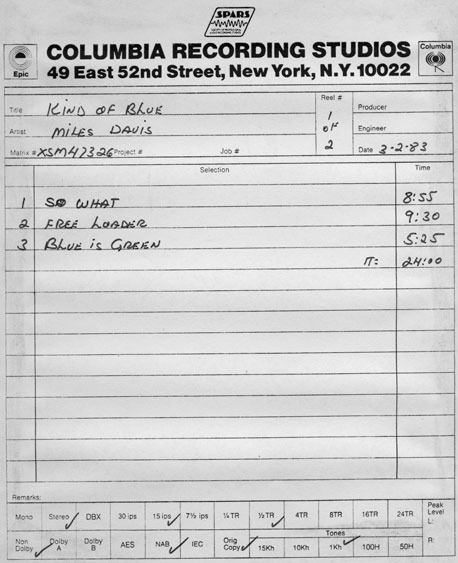 SPARS
Epic
COLUMBIA RECORDING STUDIOS
Columbia
49 East 52nd Street, New York, N.Y. 10022
Title KIND OF BLUE Reel # Producer
Artist MILES DAVIS 1 OF Engineer
Matrix # XSM47326 Project # Job # 2 Date 3-2-83
Selection Time
1 SO WHAT 8:55
2 FREE LOADER 9:30
3 BLUE is GREEN 5:25
TT: 24:00
Remarks:
Mono Stereo DBX 30 ips 15 ips 7½ ips ¼ TR ½ TR 4TR 8TR 16TR 24TR Peak Level L:
Non Dolby Dolby A Dolby B AES NAB IEC Orig Copy Tones 15Kh 10Kh 1Kh 100H 50H R: